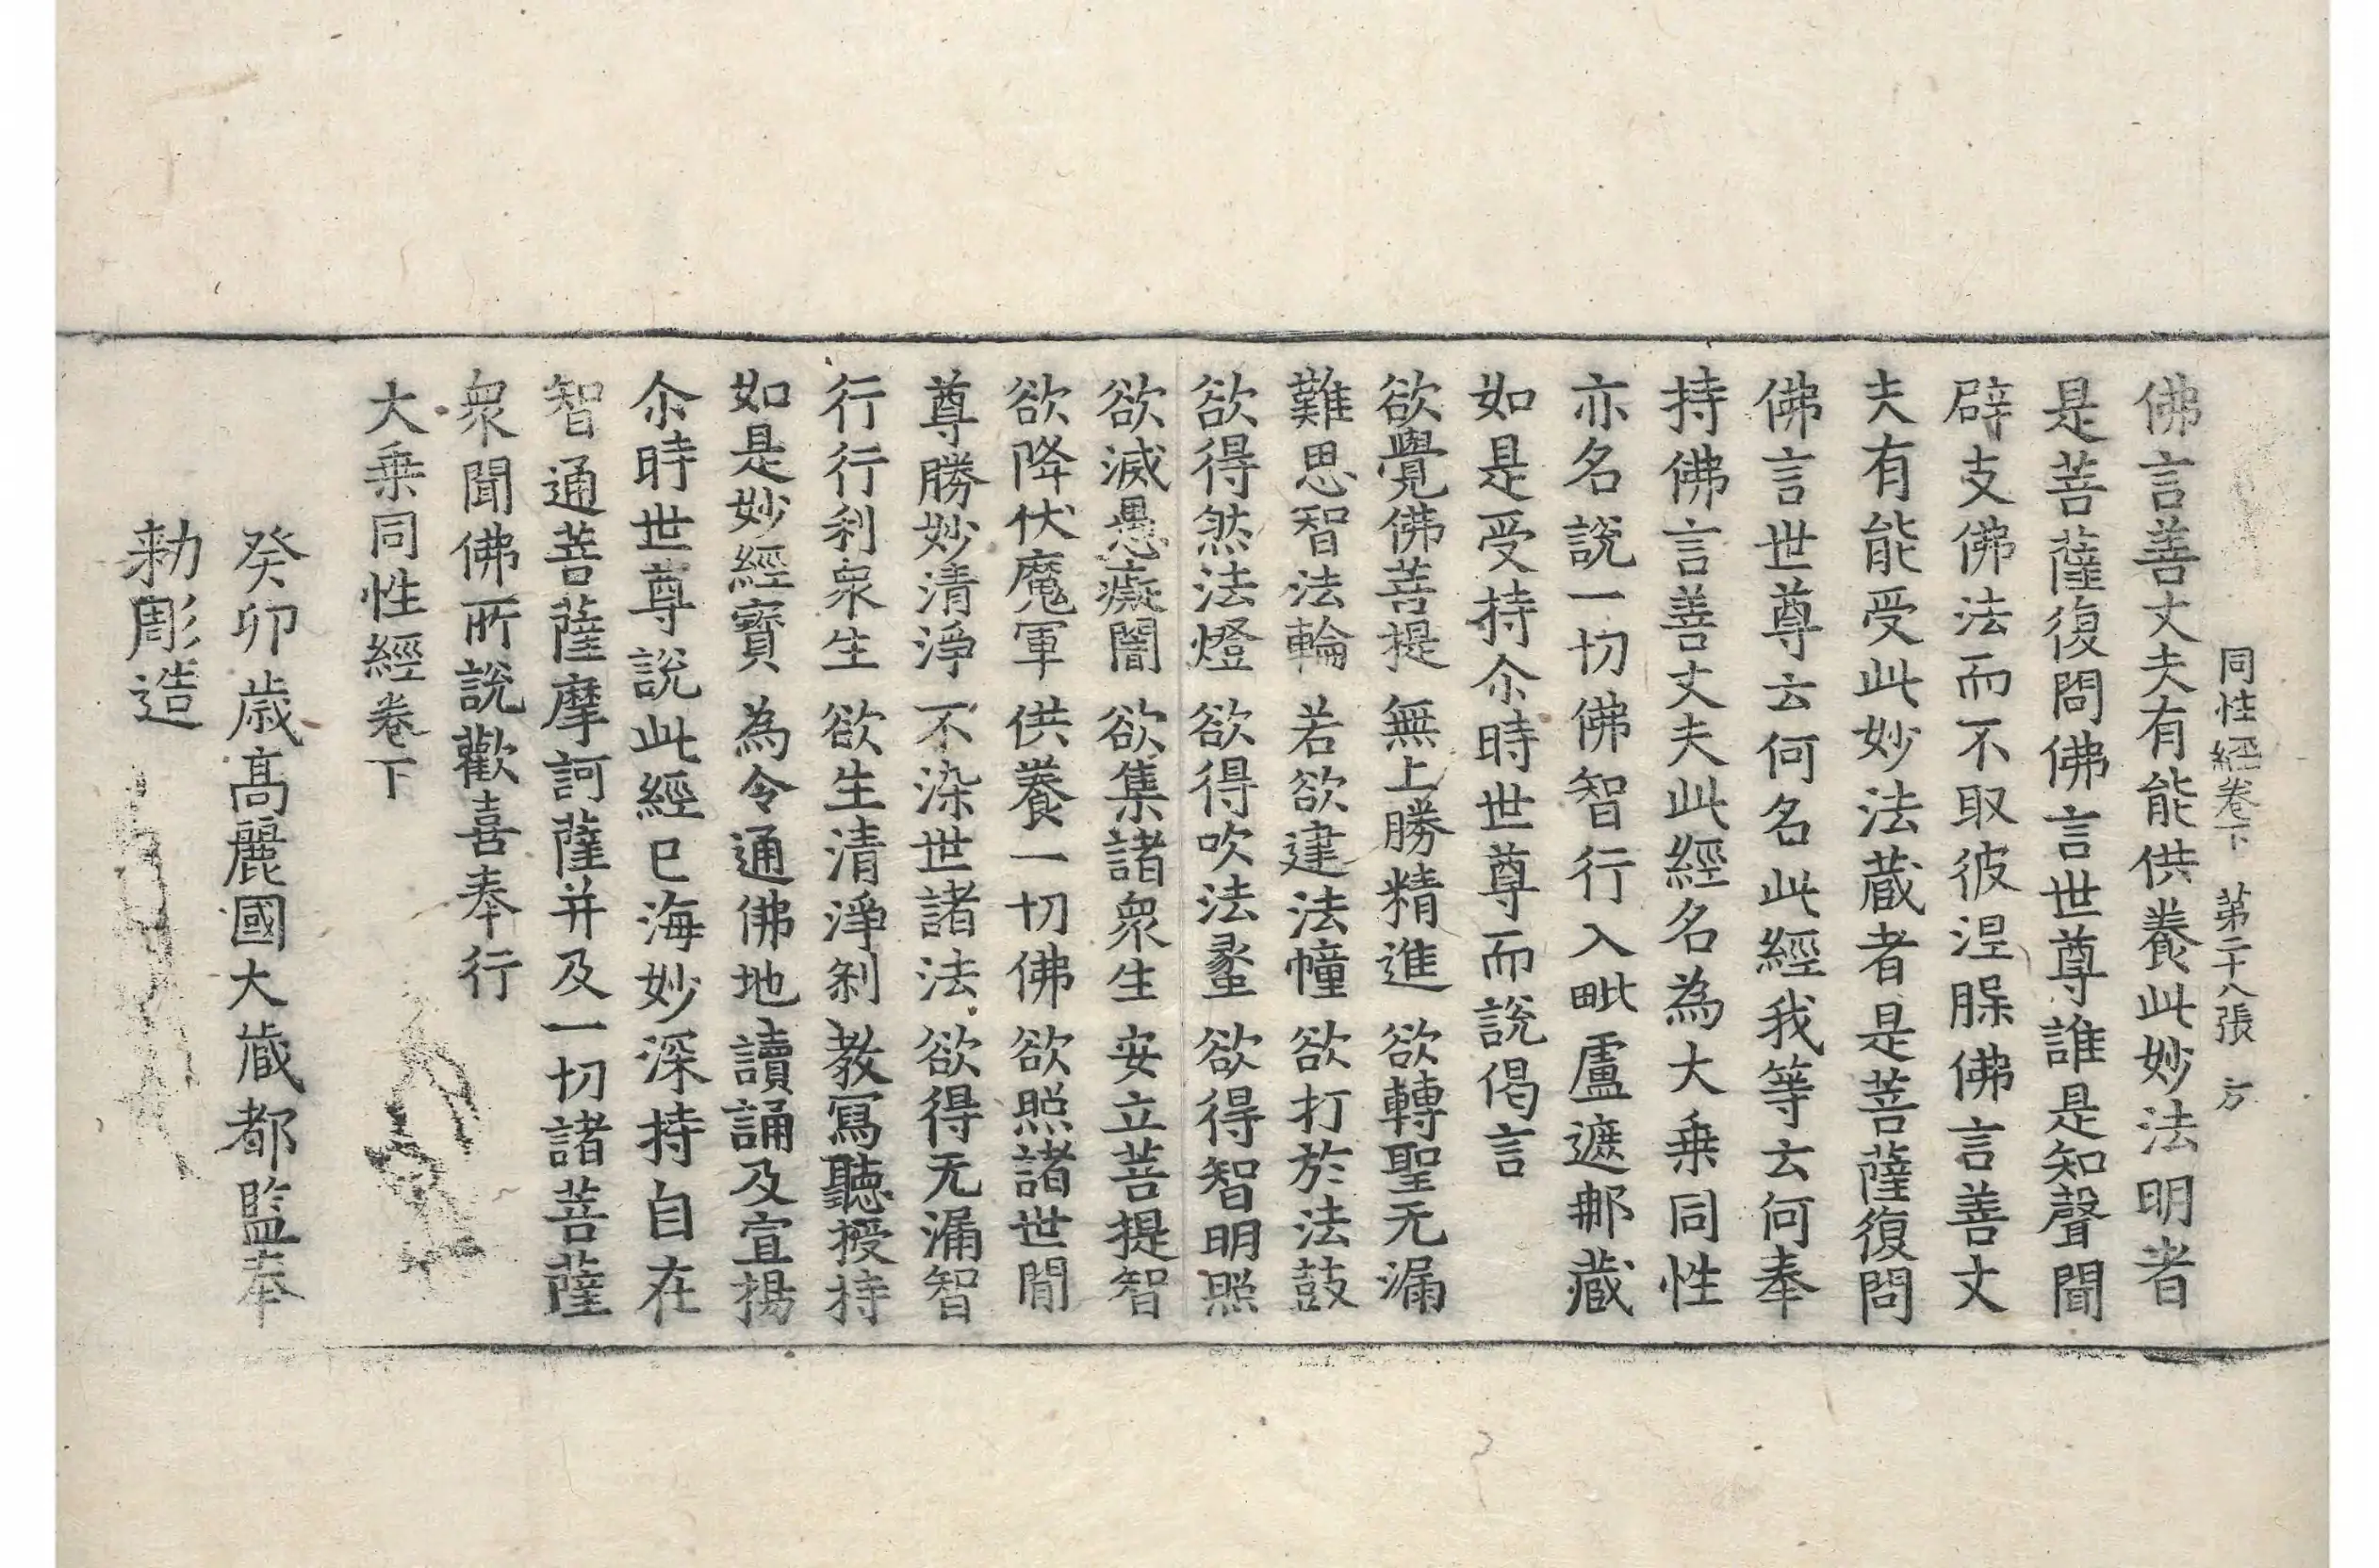 同性經卷下 第二十八張 方
佛言善丈夫有能供養此妙法明者
是菩薩復問佛言世尊誰是知聲聞
辟支佛法而不取彼涅脵佛言善丈
夫有能受此妙法蔵者是菩薩復問
佛言世尊云何名此經我等云何奉
持佛言善丈夫此經名為大乗同性
亦名說一切佛智行入毗盧遮那藏
如是受持尒時世尊而說偈言
欲覺佛菩提 無上勝精進 欲轉聖无漏
難思智法輪 若欲建法幢 欲打於法鼓
欲得然法燈 欲得吹法䗍 欲得智明照
欲滅愚癡闇 欲集諸衆生 安立菩提智
欲降伏魔軍 供養一切佛 欲照諸世間
尊勝妙清淨 不染世諸法 欲得无漏智
行行利衆生 欲生清淨刹 教寫聽授持
如是妙經寶 為令通佛地 讀誦及宣揚
尒時世尊說此經已海妙深持自在
智通菩薩摩訶薩并及一切諸菩薩
衆聞佛所說歡喜奉行
大乗同性經卷下
癸卯歲髙麗國大蔵都監奉
勑彫造